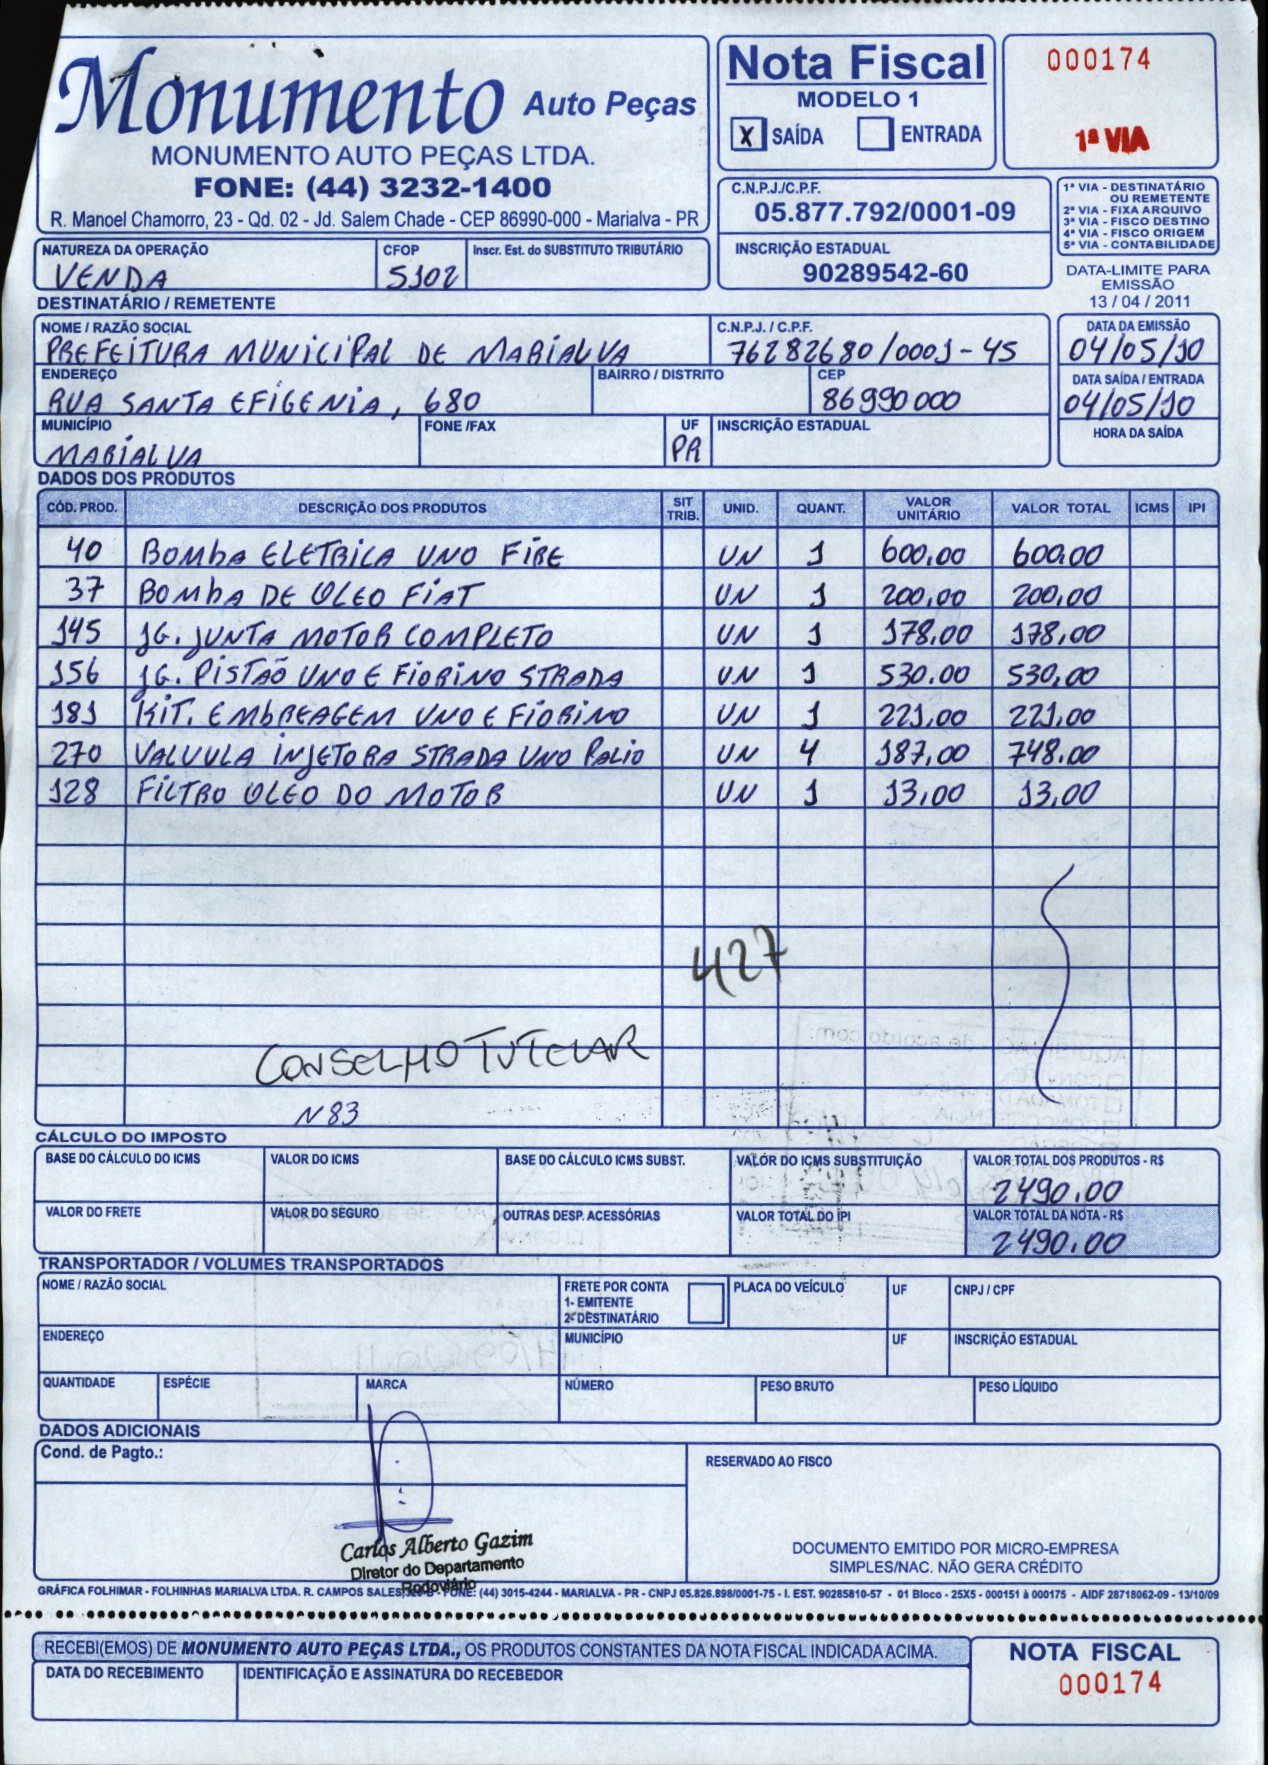 Monumento Auto Peças
MONUMENTO AUTO PEÇAS LTDA.
FONE: (44) 3232-1400
R. Manoel Chamorro, 23 - Qd. 02 - Jd. Salem Chade - CEP 86990-000 - Marialva - PR
Nota Fiscal
MODELO 1
X SAÍDA ENTRADA
000174
1ª VIA
C.N.P.J./C.P.F.
05.877.792/0001-09
INSCRIÇÃO ESTADUAL
90289542-60
1ª VIA - DESTINATÁRIO
OU REMETENTE
2ª VIA - FIXA ARQUIVO
3ª VIA - FISCO DESTINO
4ª VIA - FISCO ORIGEM
5ª VIA - CONTABILIDADE
DATA-LIMITE PARA
EMISSÃO
13 / 04 / 2011
NATUREZA DA OPERAÇÃO CFOP Inscr. Est. do SUBSTITUTO TRIBUTÁRIO
VENDA 5102
DESTINATÁRIO / REMETENTE
NOME / RAZÃO SOCIAL C.N.P.J. / C.P.F. DATA DA EMISSÃO
PREFEITURA MUNICIPAL DE MARIALVA 76282680/0001-45 04/05/10
ENDEREÇO BAIRRO / DISTRITO CEP DATA SAÍDA / ENTRADA
RUA SANTA EFIGENIA, 680 86990000 04/05/10
MUNICÍPIO FONE /FAX UF INSCRIÇÃO ESTADUAL HORA DA SAÍDA
MARIALVA PR
DADOS DOS PRODUTOS
CÓD. PROD. DESCRIÇÃO DOS PRODUTOS SIT TRIB. UNID. QUANT. VALOR UNITÁRIO VALOR TOTAL ICMS IPI
40 BOMBA ELETRICA UNO FIRE UN 1 600,00 600,00
37 BOMBA DE OLEO FIAT UN 1 200,00 200,00
145 JG. JUNTA MOTOR COMPLETO UN 1 178,00 178,00
156 JG. PISTÃO UNO E FIORINO STRADA UN 1 530,00 530,00
181 KIT. EMBREAGEM UNO E FIORINO UN 1 221,00 221,00
270 VALVULA INJETORA STRADA UNO PALIO UN 4 187,00 748,00
128 FILTRO OLEO DO MOTOR UN 1 13,00 13,00
427
CONSELHO TUTELAR
N83
CÁLCULO DO IMPOSTO
BASE DO CÁLCULO DO ICMS VALOR DO ICMS BASE DO CÁLCULO ICMS SUBST. VALOR DO ICMS SUBSTITUIÇÃO VALOR TOTAL DOS PRODUTOS - R$
2490,00
VALOR DO FRETE VALOR DO SEGURO OUTRAS DESP. ACESSÓRIAS VALOR TOTAL DO IPI VALOR TOTAL DA NOTA - R$
2490,00
TRANSPORTADOR / VOLUMES TRANSPORTADOS
NOME / RAZÃO SOCIAL FRETE POR CONTA PLACA DO VEÍCULO UF CNPJ / CPF
1- EMITENTE
2- DESTINATÁRIO
ENDEREÇO MUNICÍPIO UF INSCRIÇÃO ESTADUAL
QUANTIDADE ESPÉCIE MARCA NÚMERO PESO BRUTO PESO LÍQUIDO
DADOS ADICIONAIS
Cond. de Pagto.:
RESERVADO AO FISCO
Carlos Alberto Gazim
Diretor do Departamento
Rodoviário
DOCUMENTO EMITIDO POR MICRO-EMPRESA
SIMPLES/NAC. NÃO GERA CRÉDITO
GRÁFICA FOLHIMAR - FOLHINHAS MARIALVA LTDA. R. CAMPOS SALES, FONE: (44) 3015-4244 - MARIALVA - PR - CNPJ 05.826.898/0001-75 - I. EST. 90285810-57 - 01 Bloco - 25X5 - 000151 à 000175 - AIDF 28718062-09 - 13/10/09
RECEBI(EMOS) DE MONUMENTO AUTO PEÇAS LTDA., OS PRODUTOS CONSTANTES DA NOTA FISCAL INDICADA ACIMA.
DATA DO RECEBIMENTO IDENTIFICAÇÃO E ASSINATURA DO RECEBEDOR
NOTA FISCAL
000174